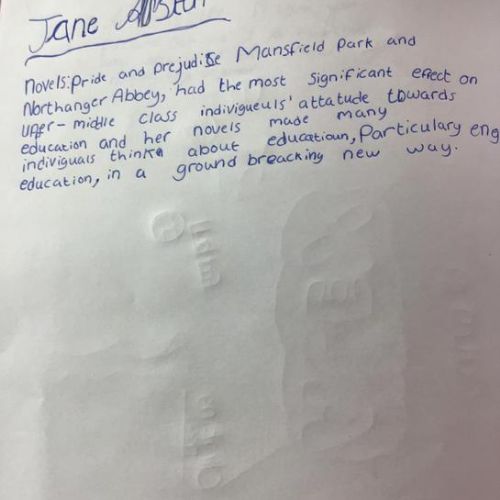 Jane Austen
Novels: Pride and prejudise Mansfield Park and
Northanger Abbey, had the most significant effect on
upper-middle class indivigueuls' attatude towards
education and her novels made many
indiviguals think about educatioun, Particulary eng
education, in a ground breacking new way.